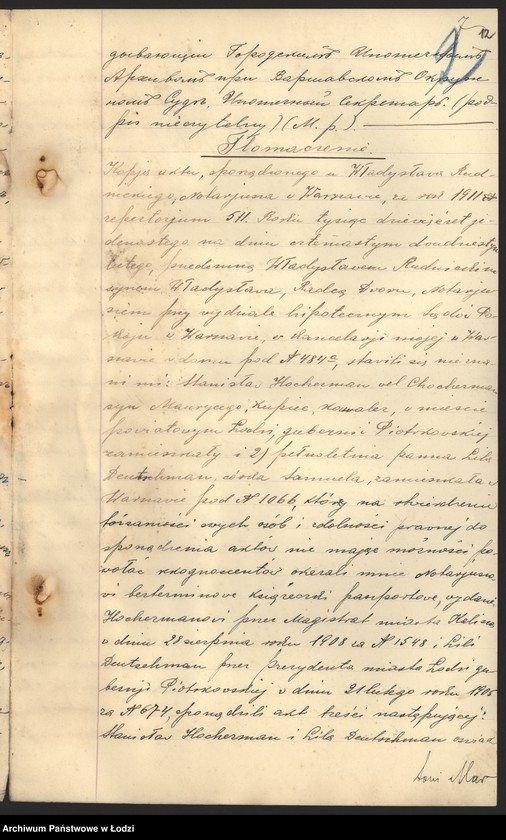 7 12
2
дывающiй Городскимъ Ипотечнымъ
Архивомъ при Варшавскомъ Окруж-
номъ Судѣ, Ипотечный Секретарь. (pod-
pis nieczytelny) (M. p.).
Tłomaczenie.
Kopja aktu, sporządzonego u Władysława Rud-
nickiego, Notarjusza w Warszawie, za rok 1911
repertorjum 511. Roku tysiąc dziewięćset je-
denastego na dniu czternastym dwudziestym
lutego, przedemną Władysławem Rudnickim
synem Władysława, Radcą Dworu, Notarju-
szem przy wydziale hipotecznym Sądów Po-
koju w Warszawie, w Kancelarji mojej w War-
szawie w domu pod N 484c, stawili się niezna-
ni mi: Stanisław Hocherman vel Chocherman
syn Maurycego, kupiec, kawaler, w mieście
powiatowym Łodzi, gubernii Piotrkowskiej
zamieszkały i 2) pełnoletnia panna Lila
Deutschman, córka Samuela, zamieszkała w
Warszawie pod N 1066, którzy na stwierdzenie
tożsamości swych osób i zdolności prawnej do
sporządzenia aktów nie mając możności po-
wołać rekognoscentów okazali mnie Notarjuszo-
wi bezterminowe książeczki paszportowe, wydane
Hochermanowi przez Magistrat miasta Kalisza
w dniu 28 sierpnia roku 1908 za N 1548 i Lili
Deutschman przez prezydenta miasta Łodzi gu-
bernji Piotrkowskiej w dniu 21 lutego roku 1905
za N 674, sporządzili akt treści następującej:
Stanisław Hocherman i Lila Deutschman oświad
Archiwum Państwowe w Łodzi